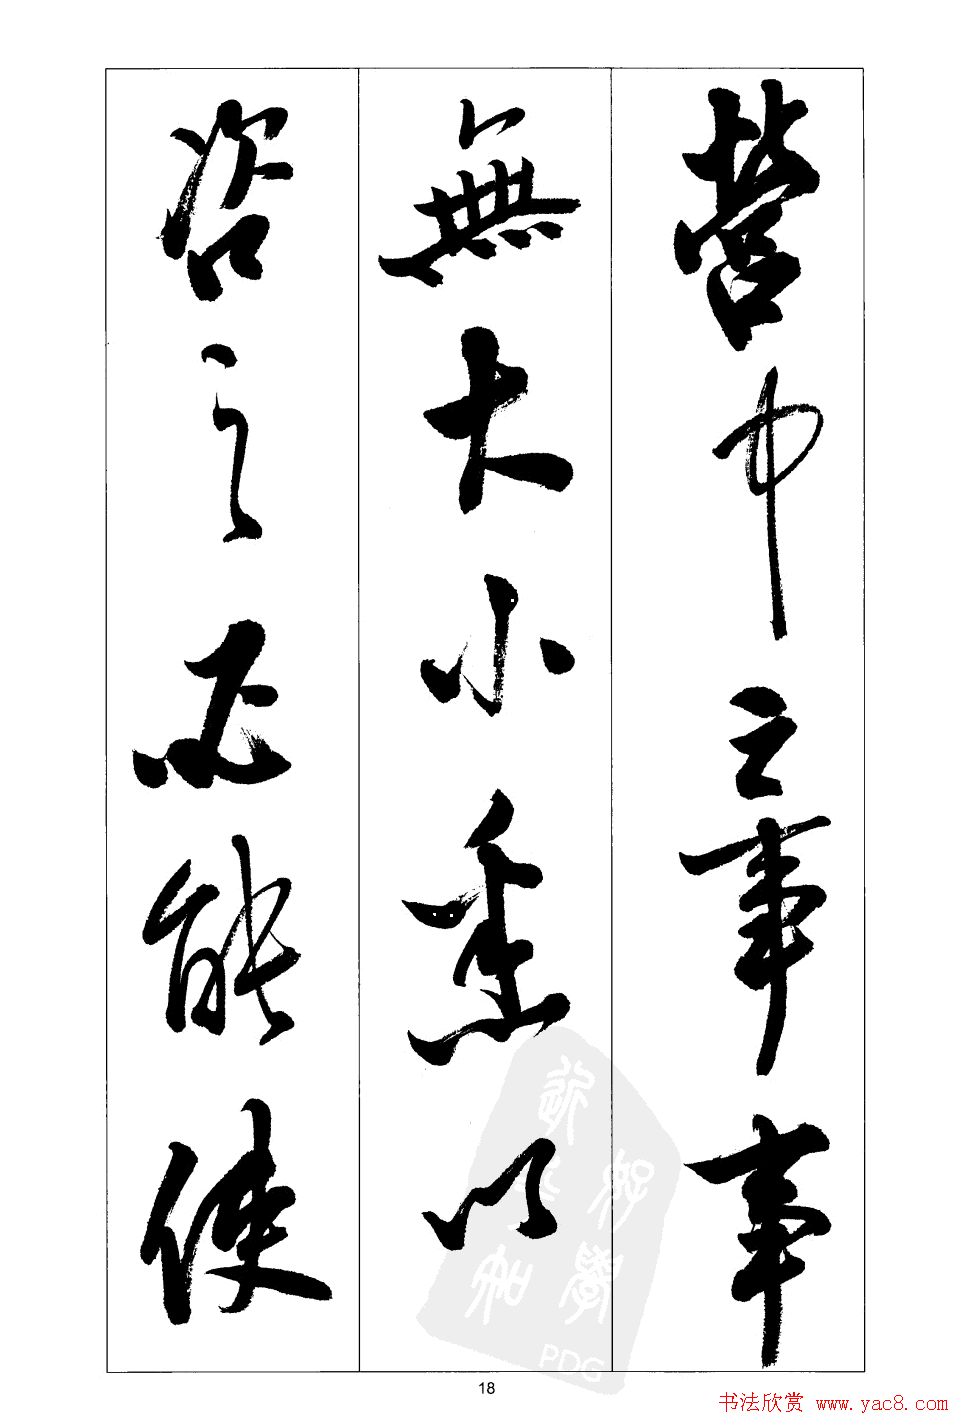 營中之事事
無大小悉以
咨之必能使
18
书法欣赏 www.yac8.com
PDG